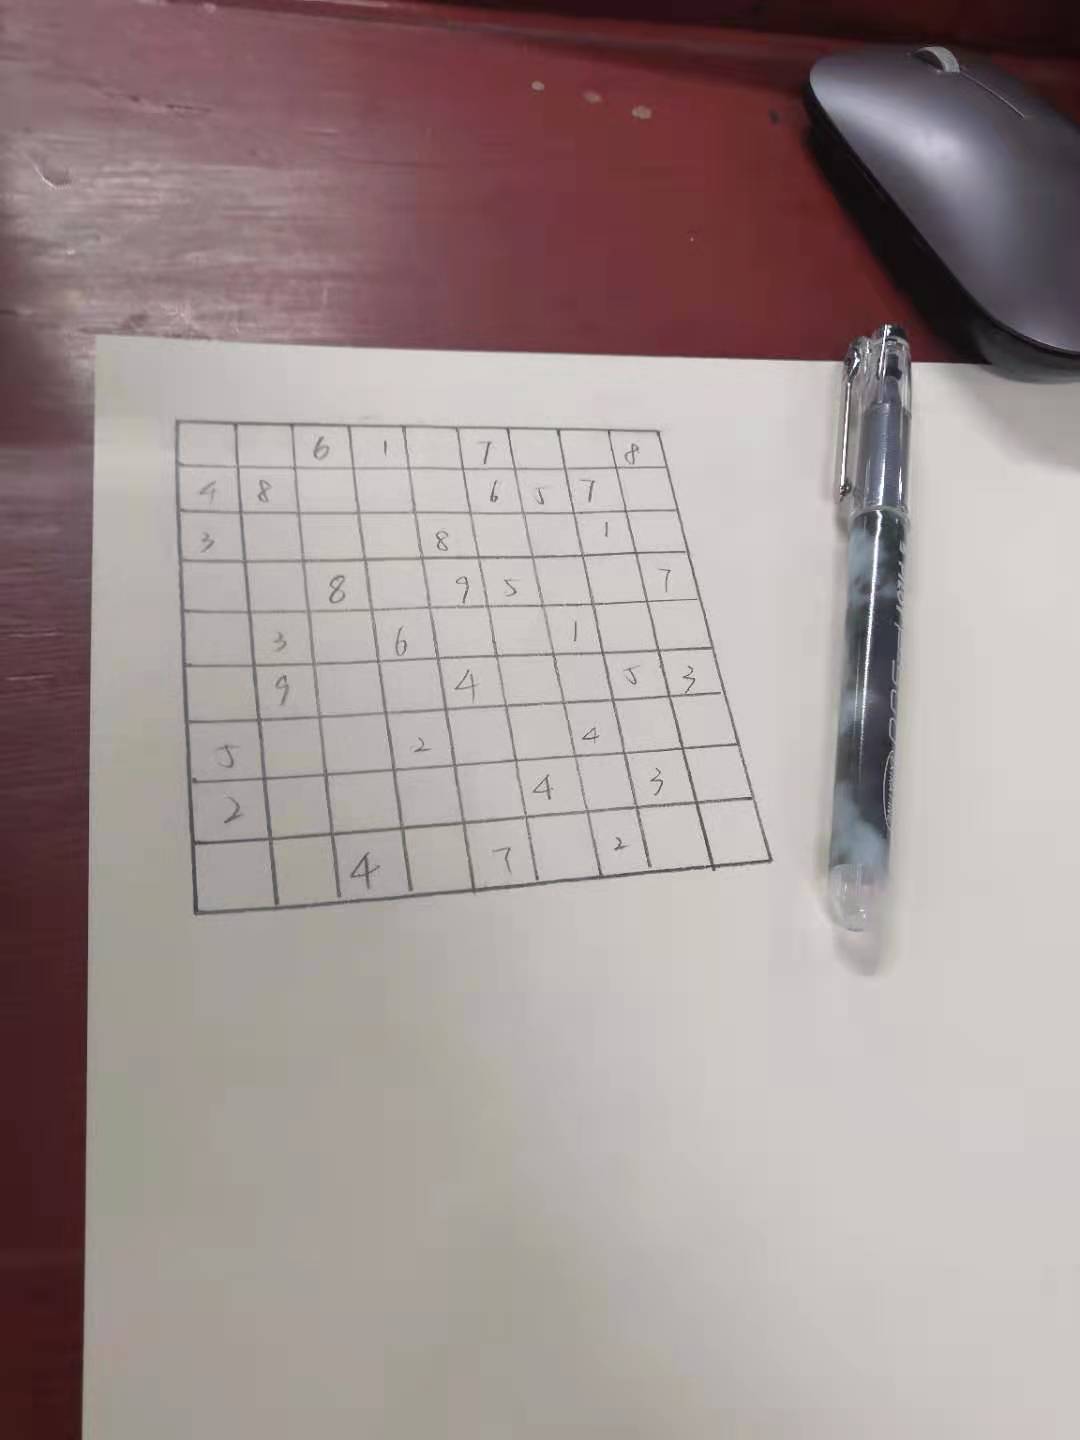 6 1 7 8
4 8 6 5 7
3 8 1
8 9 5 7
3 6 1
9 4 5 3
5 2 4
2 4 3
4 7 2